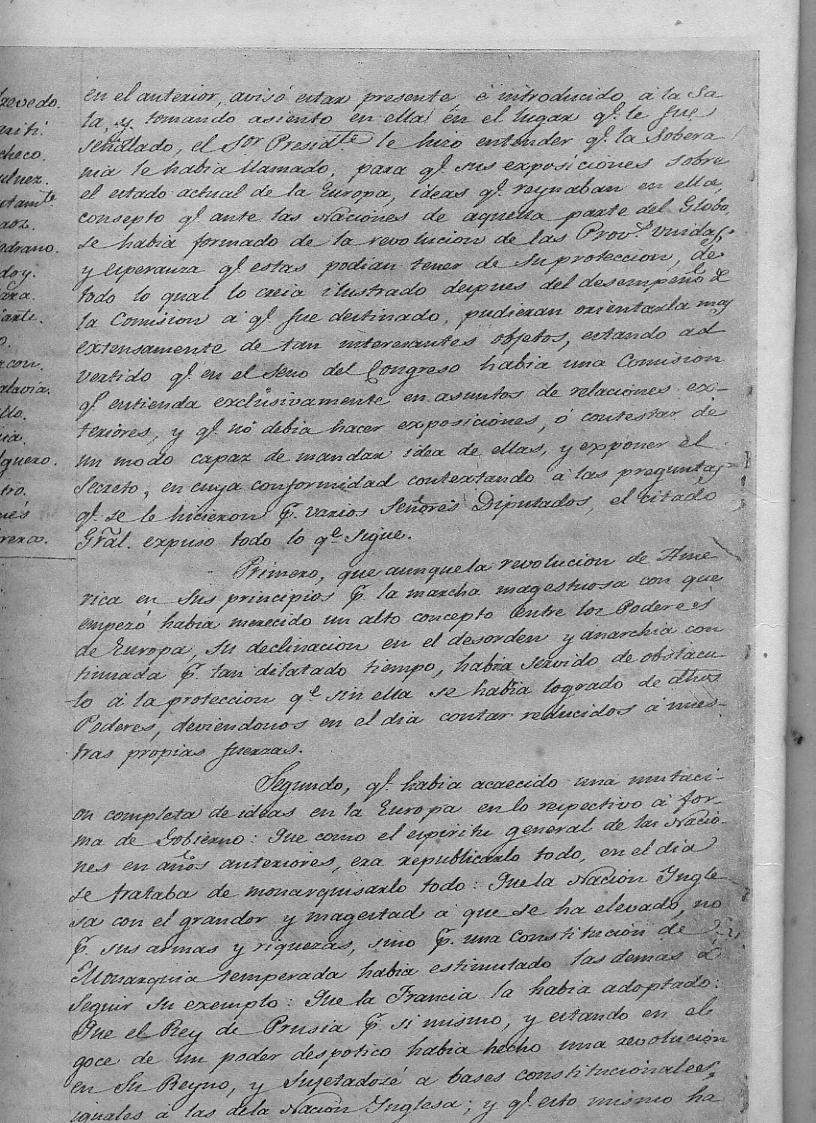 en el anterior, avisó estar presente é introducido á la Sa
la, y tomando asiento en ella en el lugar q.e le fue
señalado, el Sor Presid.te le hizo entender q.e la Sobera
nia le habia llamado, para q.e sus exposiciones sobre
el estado actual de la Europa, ideas q.e reynaban en ella,
consepto q.e ante las Naciones de aquella parte del Globo
se habia formado de la revolucion de las Prov.s unidas,
y esperanza q.e estas podian tener de su proteccion, de
todo lo qual lo creia ilustrado despues del desempeño de
la Comision á q.e fue destinado, pudieran orientarla muy
extensamente de tan interesantes objetos, estando ad
vertido q.e en el Seno del Congreso habia una Comision
q.e entienda exclusivamente en asuntos de relaciones ex-
teriores, y q.e no debia hacer exposiciones, ó contestar de
un modo capaz de mandar idea de ellas, y exponer el
Secreto, en cuya conformidad contextando á las preguntas
q.e se le hicieron p.r varios Señores Diputados, el citado
Gral. expuso todo lo q.e Sigue.
Primero, que aunque la revolucion de Ame
rica en sus principios p.r la marcha magestuosa con que
empezó habia merecido un alto concepto entre los Poderes
de Europa, su declinacion en el desorden y anarchia con
tinuada p.r tan dilatado tiempo, habia servido de obstacu
lo á la proteccion q.e sin ella se habia logrado de dhos
Poderes, deviendonos en el dia contar reducidos á nues-
tras propias fuerzas.
Segundo, q.e habia acaecido una mutaci-
on completa de ideas en la Europa en lo respectivo á for-
ma de Gobierno: Que como el espiritu general de las Nacio-
nes en años anteriores, era republicarlo todo, en el dia
se trataba de monarquisarlo todo: Que la Nacion Ingle
sa con el grandor y magestad á que se ha elevado, no
p.r sus armas y riquezas, sino p.r una constitucion de
Monarquia temperada habia estimulado las demas á
Seguir su exemplo: Que la Francia la habia adoptado:
Que el Rey de Prusia p.r si mismo, y estando en el
goce de un poder despotico habia hecho una revolucion
en Su Reyno, y Sujetadose á bases constitucionales,
iguales á las de la Nacion Inglesa; y q.e esto mismo ha